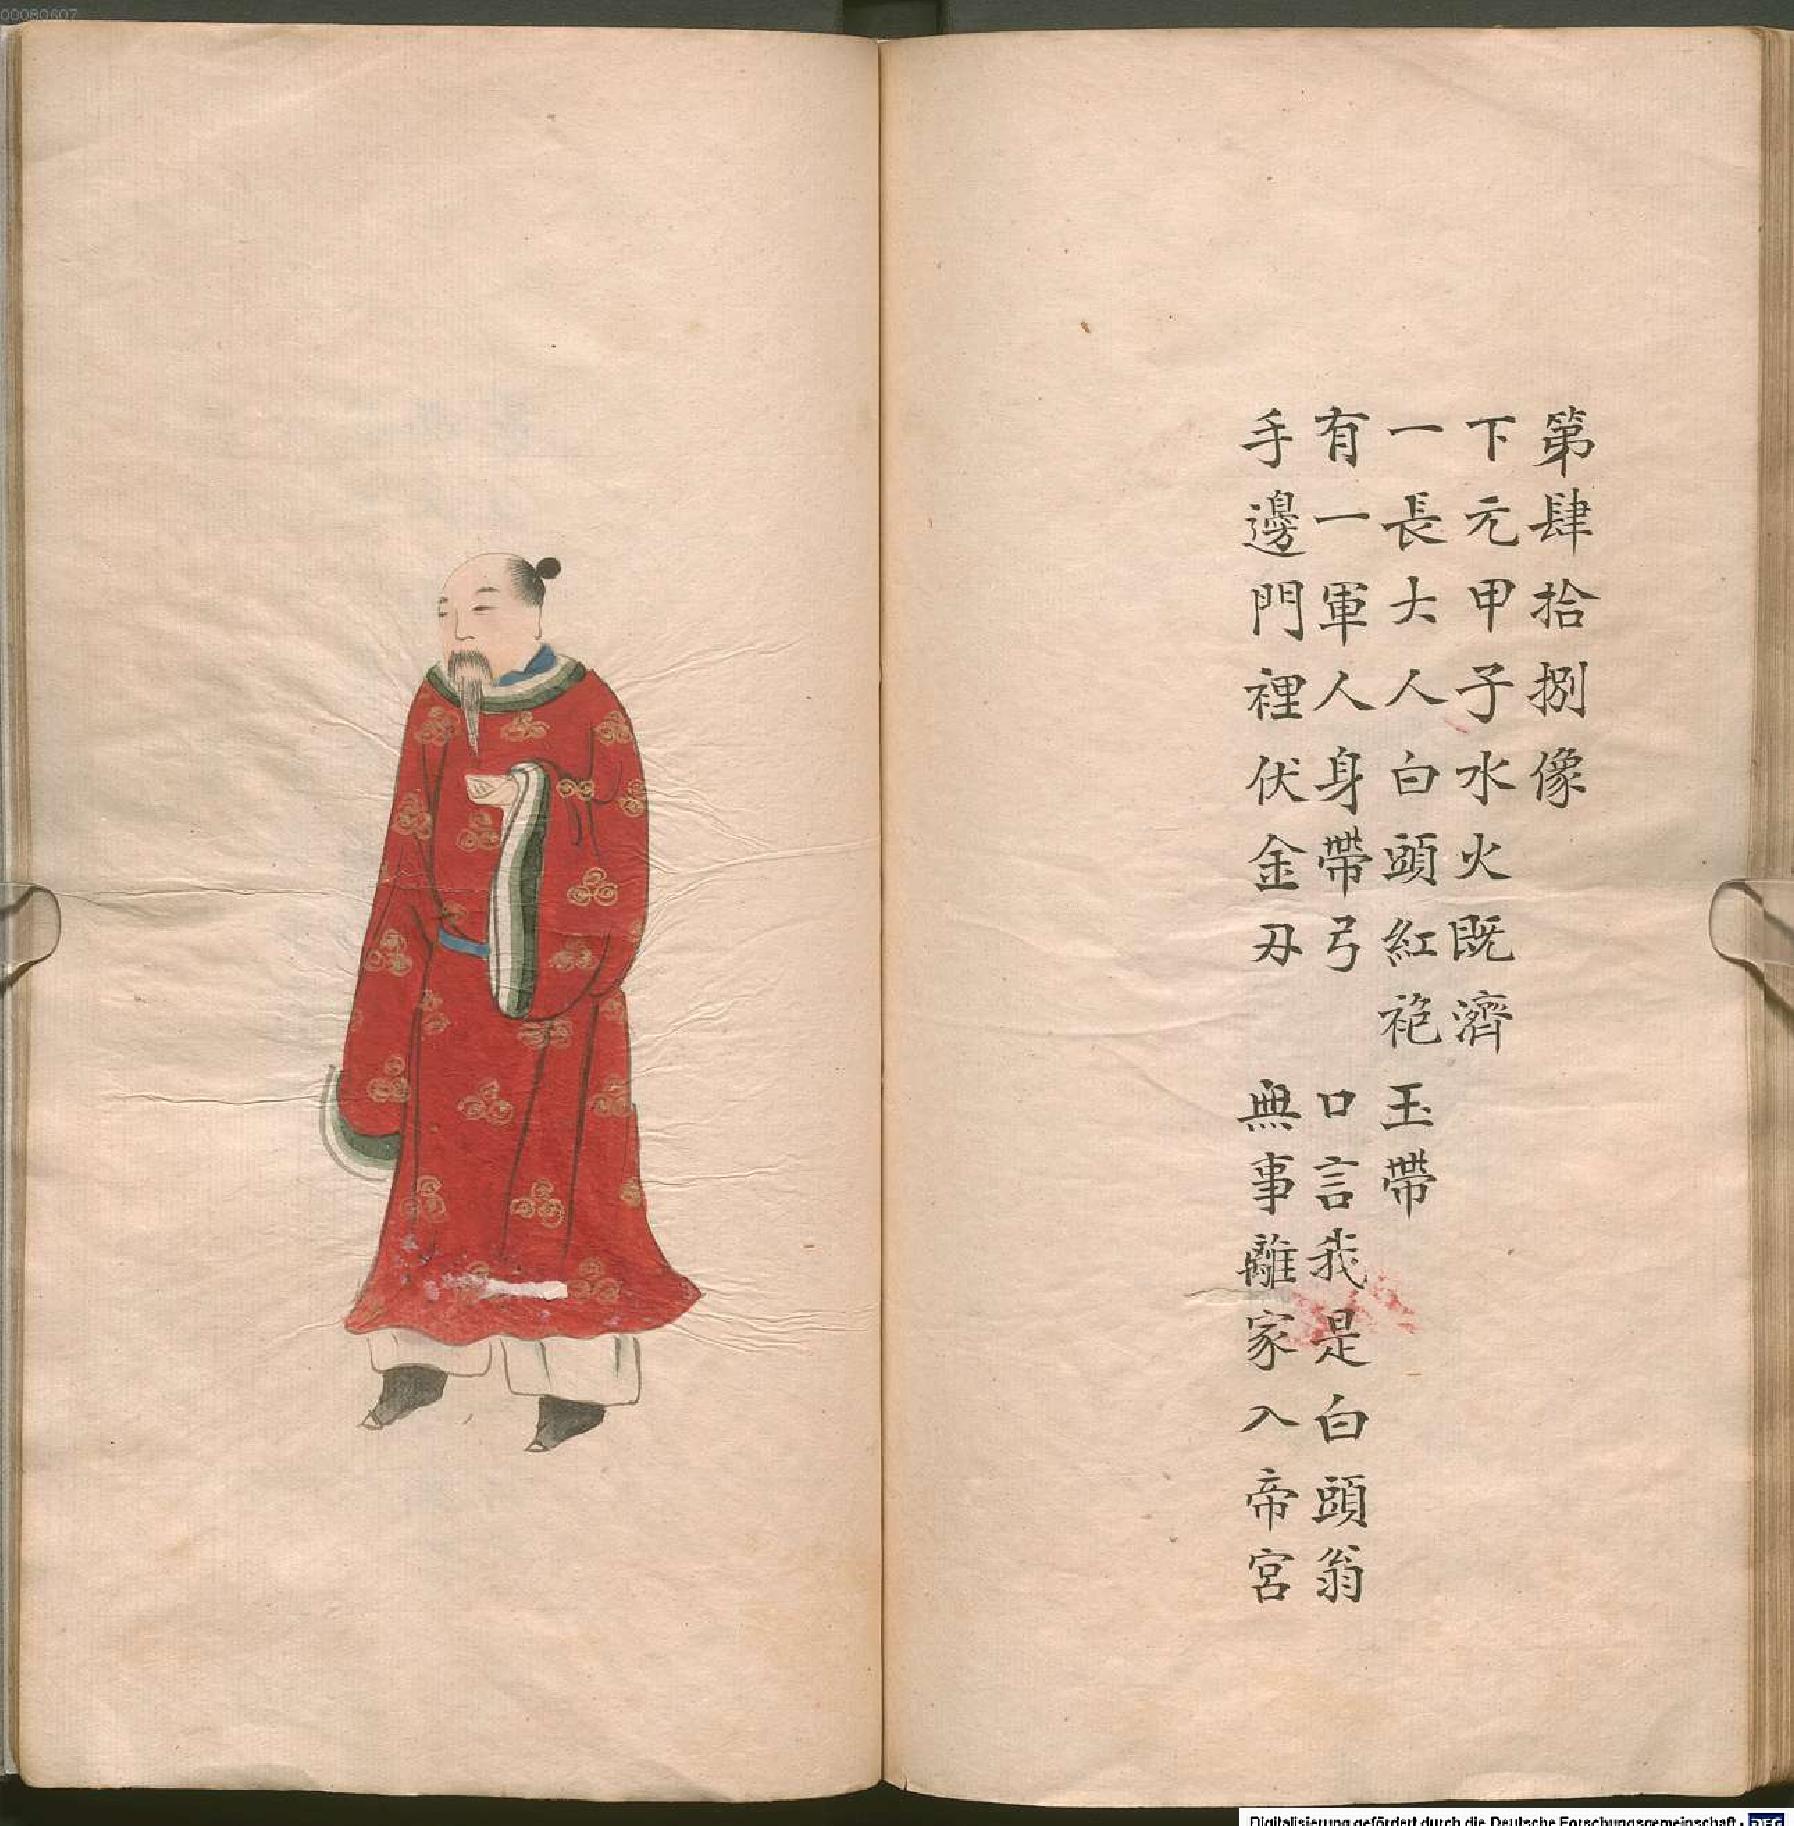 第肆拾捌像
下元甲子水火既濟
一長大人白頭紅袍　玉帶
有一軍人身帶弓　口言我是白頭翁
手邊門裡伏金刃　無事離家入帝宮
00080607
Digitalisierung gefördert durch die Deutsche Forschungsgemeinschaft - DFG